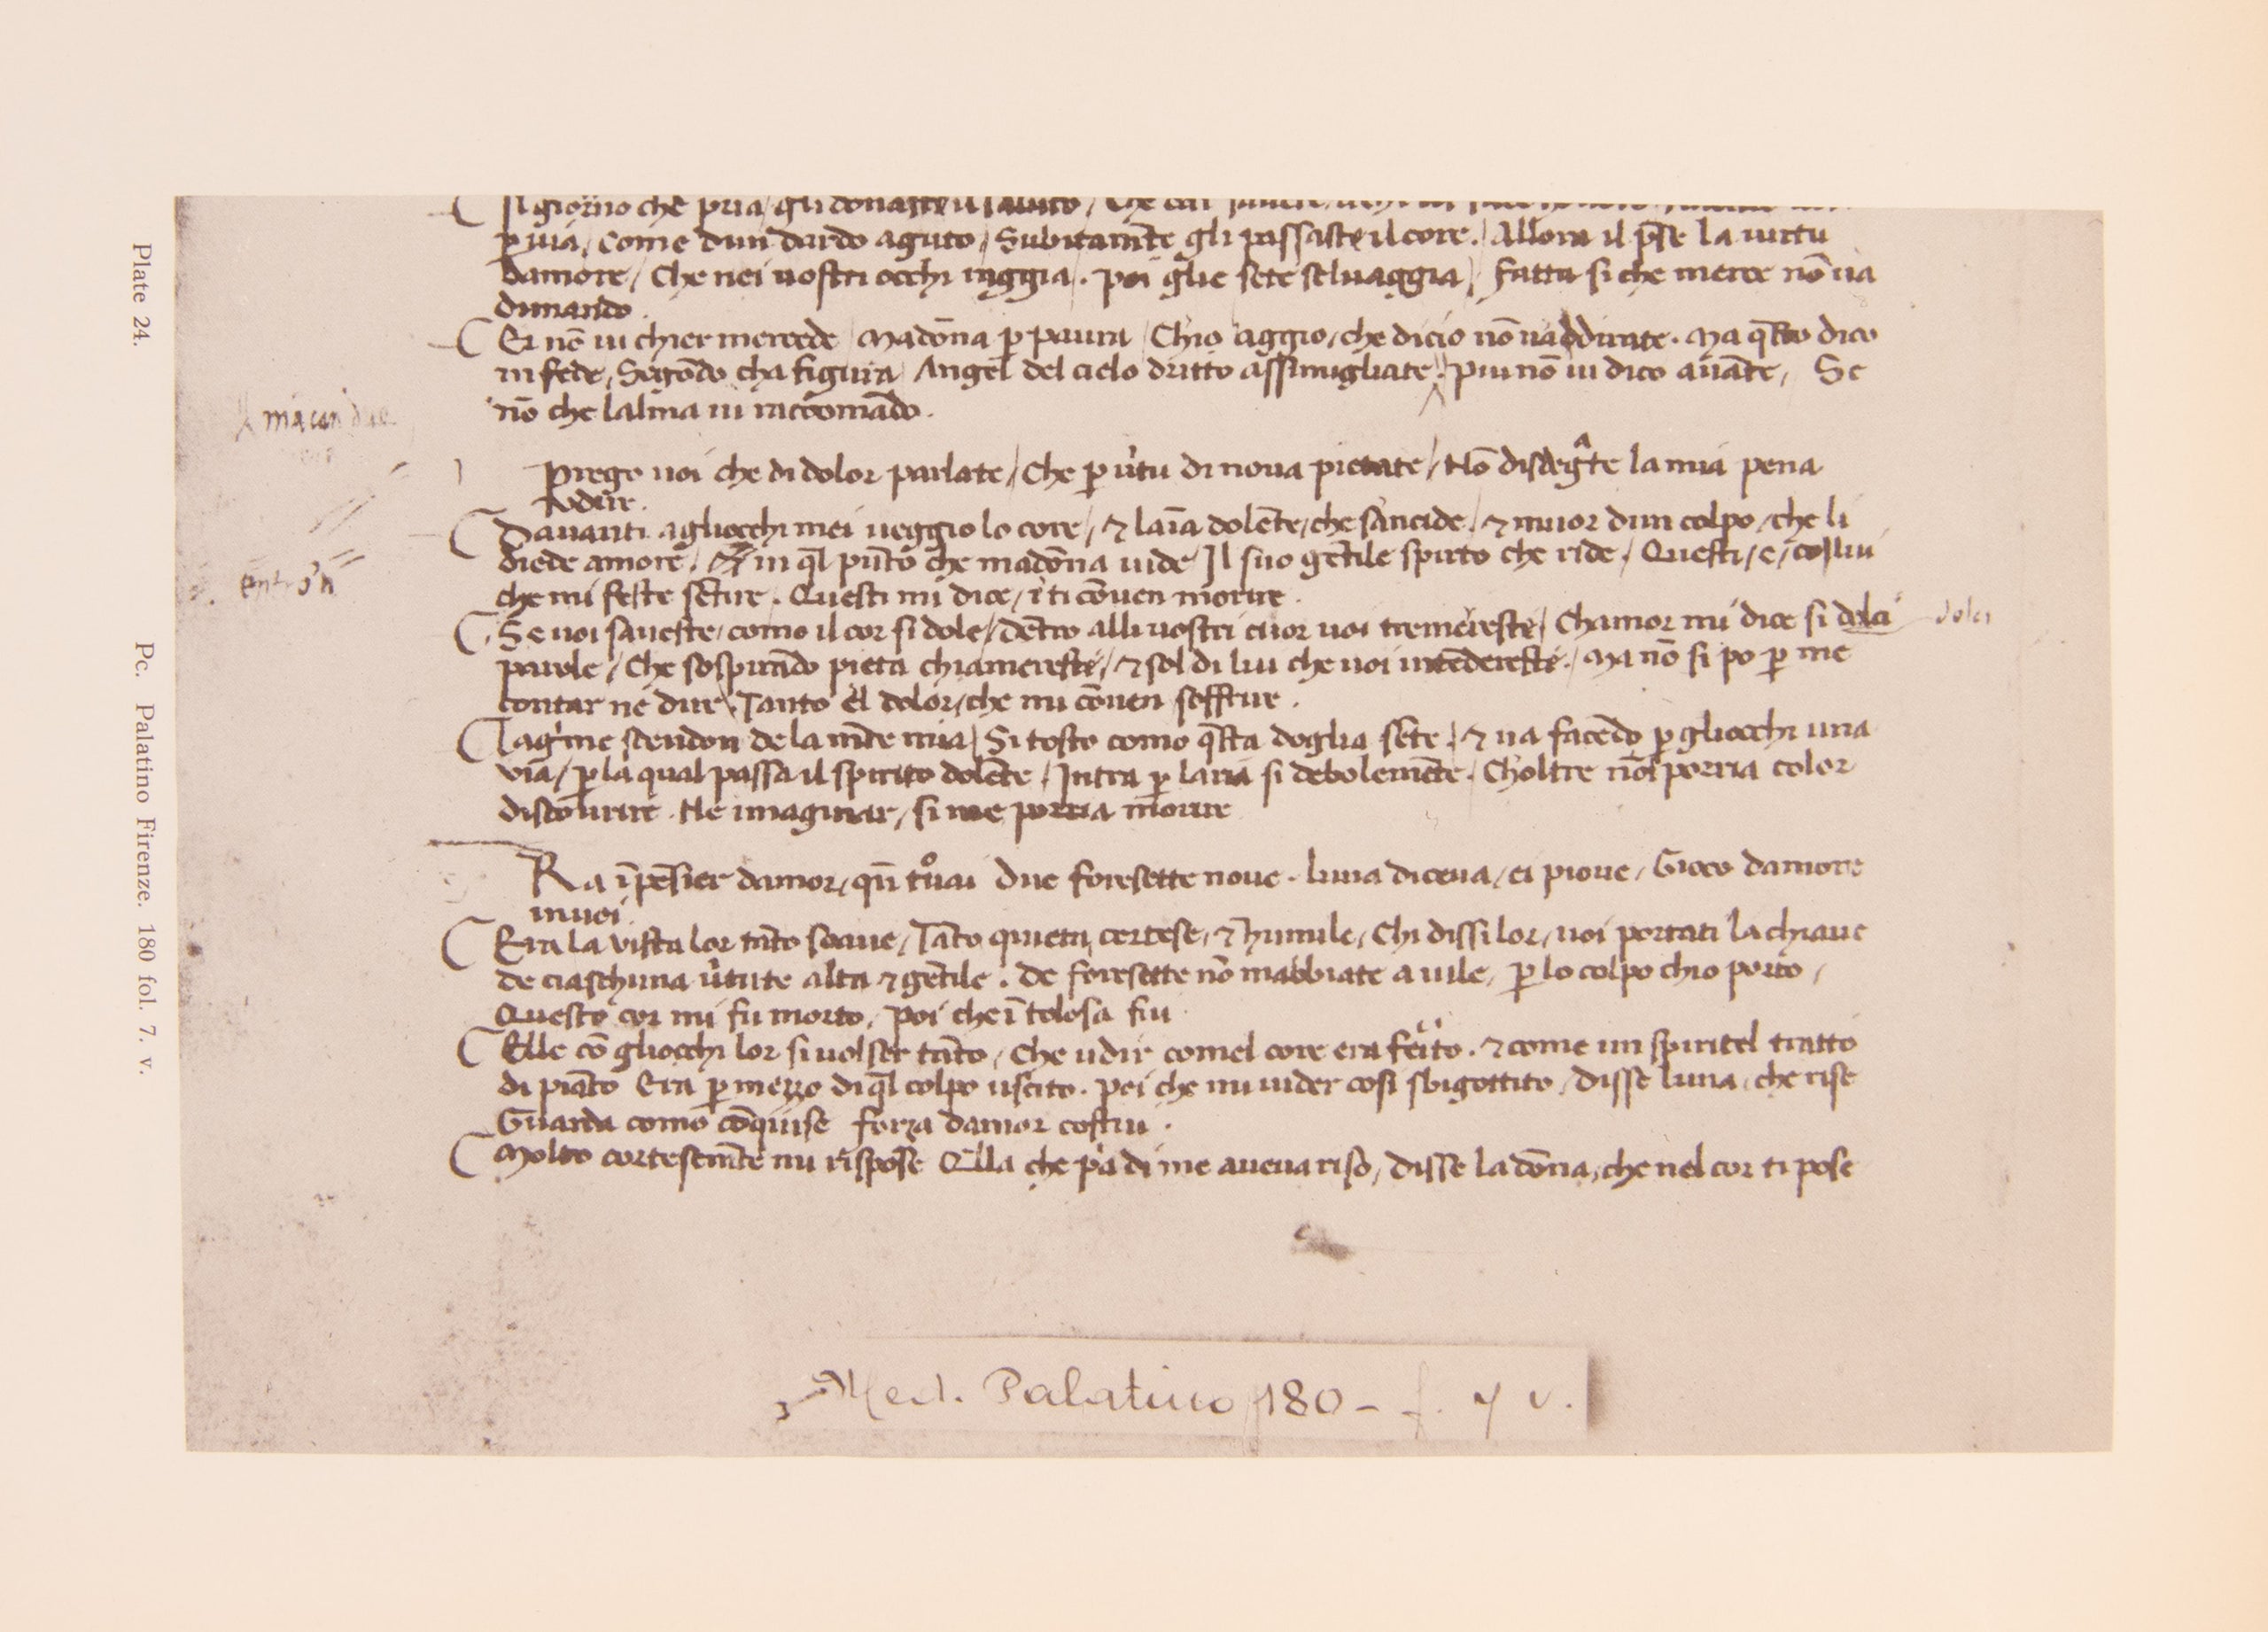 Plate 24.
Pc. Palatino Firenze. 180 fol. 7. v.
si giorno che pria / gli donaste il saluto / Che
p uia, Come dun dardo aguto / Subitamēte gli passaste il core. / Allora il p̄se la uirtu
damore / Che nei uostri occhi raggia. poi glie sete seluaggia / fatta si che merce nō ua
dimando.
Et nō ui chier mercede / Madōna p paura / Chio aggio, che dicio nō uaddirate. Ma q̄sto dico
in fede, Segōdo cha figura / Angel del cielo dritto assimigliate. piu nō ui dico auāte, Se
nō che lalma ui raccomādo.
Prego uoi che di dolor parlate / Che p u̓tu di noua pietate / Nō disdegāte la mia pena
udire.
Dauanti agliocchi miei ueggio lo core / & laīa dolēte, che sancide / & muor dun colpo / che li
diede amore / in q̄l pūto che madōna uide / Il suo gētile spirto che ride / Questi / e / collui
che mi feste sētire. Questi mi dice, i̓ ti cōuen morire.
Se uoi saueste, como il cor si dole / dētro alli uostri cuor uoi tremereste / Chamor mi dice si dolci
dolci
parole / Che sospirādo pieta chiamereste / & sol di lui che uoi intēdereste. / Ma nō si po p me
contar ne dire / Tanto el dolor, che mi cōuen sofftire.
Lag̓me scendon de la mēte mia / Si tosto como q̄sta doglia sēte / & ua facēdo p gliocchi una
via / p la qual passa il spirito dolēte / Intra p laria si debolemēte. Choltre nō porria color
discourire. Ne imaginar, si me porria morire
Ra ī pēsier damor, qn̄ tͦuai due foresette noue. luna diceua / ei pioue / Gioco damore
in uoi.
Era la vista lor tāto soaue, Tāto quieta, cortese, & humile, Chi dissi lor, uoi portati la chiaue
de ciaschuna u̓tute alta & gētile. de foresette nō mabbiate a uile, p lo colpo chio porto,
Questo cor mi fu morto, poi che ī tolosa fui
Elle cō gliocchi lor si uolser tāto, Che udir comel core era feito. & come un spiritel tratto
di piāto Era p mezzo di q̄l colpo uscito. poi che mi uider cosi sbigottito, disse luna, che rise
Guarda como cōquise forza damor costui.
Molto cortesemēte mi rispose Ella che p̓a di me aueua riso, disse la dōna, che nel cor ti pose
Med. Palatino 180 - f. 7 v.